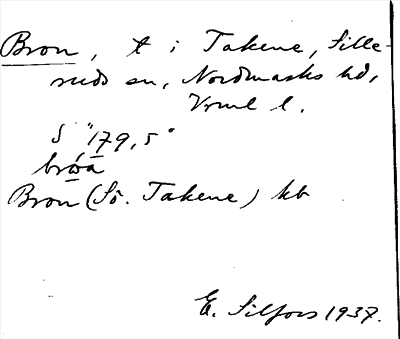 Bron, t i Takene, Sille-
ruds sn, Nordmarks hd,
Vrml l.
S "179,5"
bròa
Bron (Sö. Takene) kb
E. Silfors 1937.